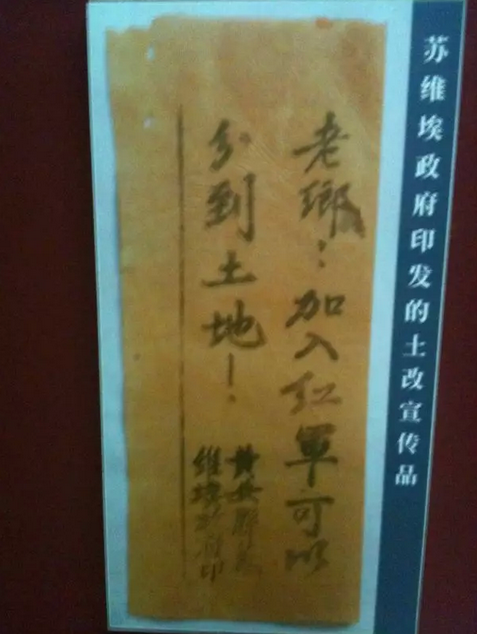 苏维埃政府印发的土改宣传品
老鄉！加入红軍可以
分到土地！
黄安縣苏
維埃政府印